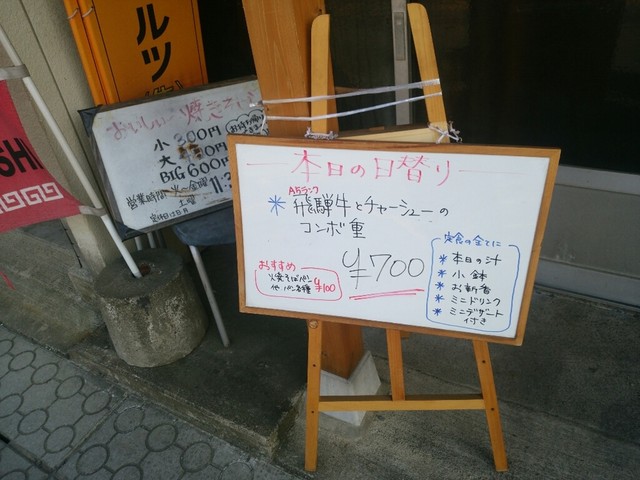 ルツ
おいしい焼きそば
小 300円
大
BIG 600円
営業時間 火〜金曜 11:3
土曜
定休日 日・月
SHI
本日の日替り
A5ランク
* 飛騨牛とチャーシューの
コンボ重
¥700
おすすめ
火焼そばパン
他 パン各種 ¥100
定食の全てに
* 本日の汁
* 小鉢
* お新香
* ミニドリンク
* ミニデザート
付き